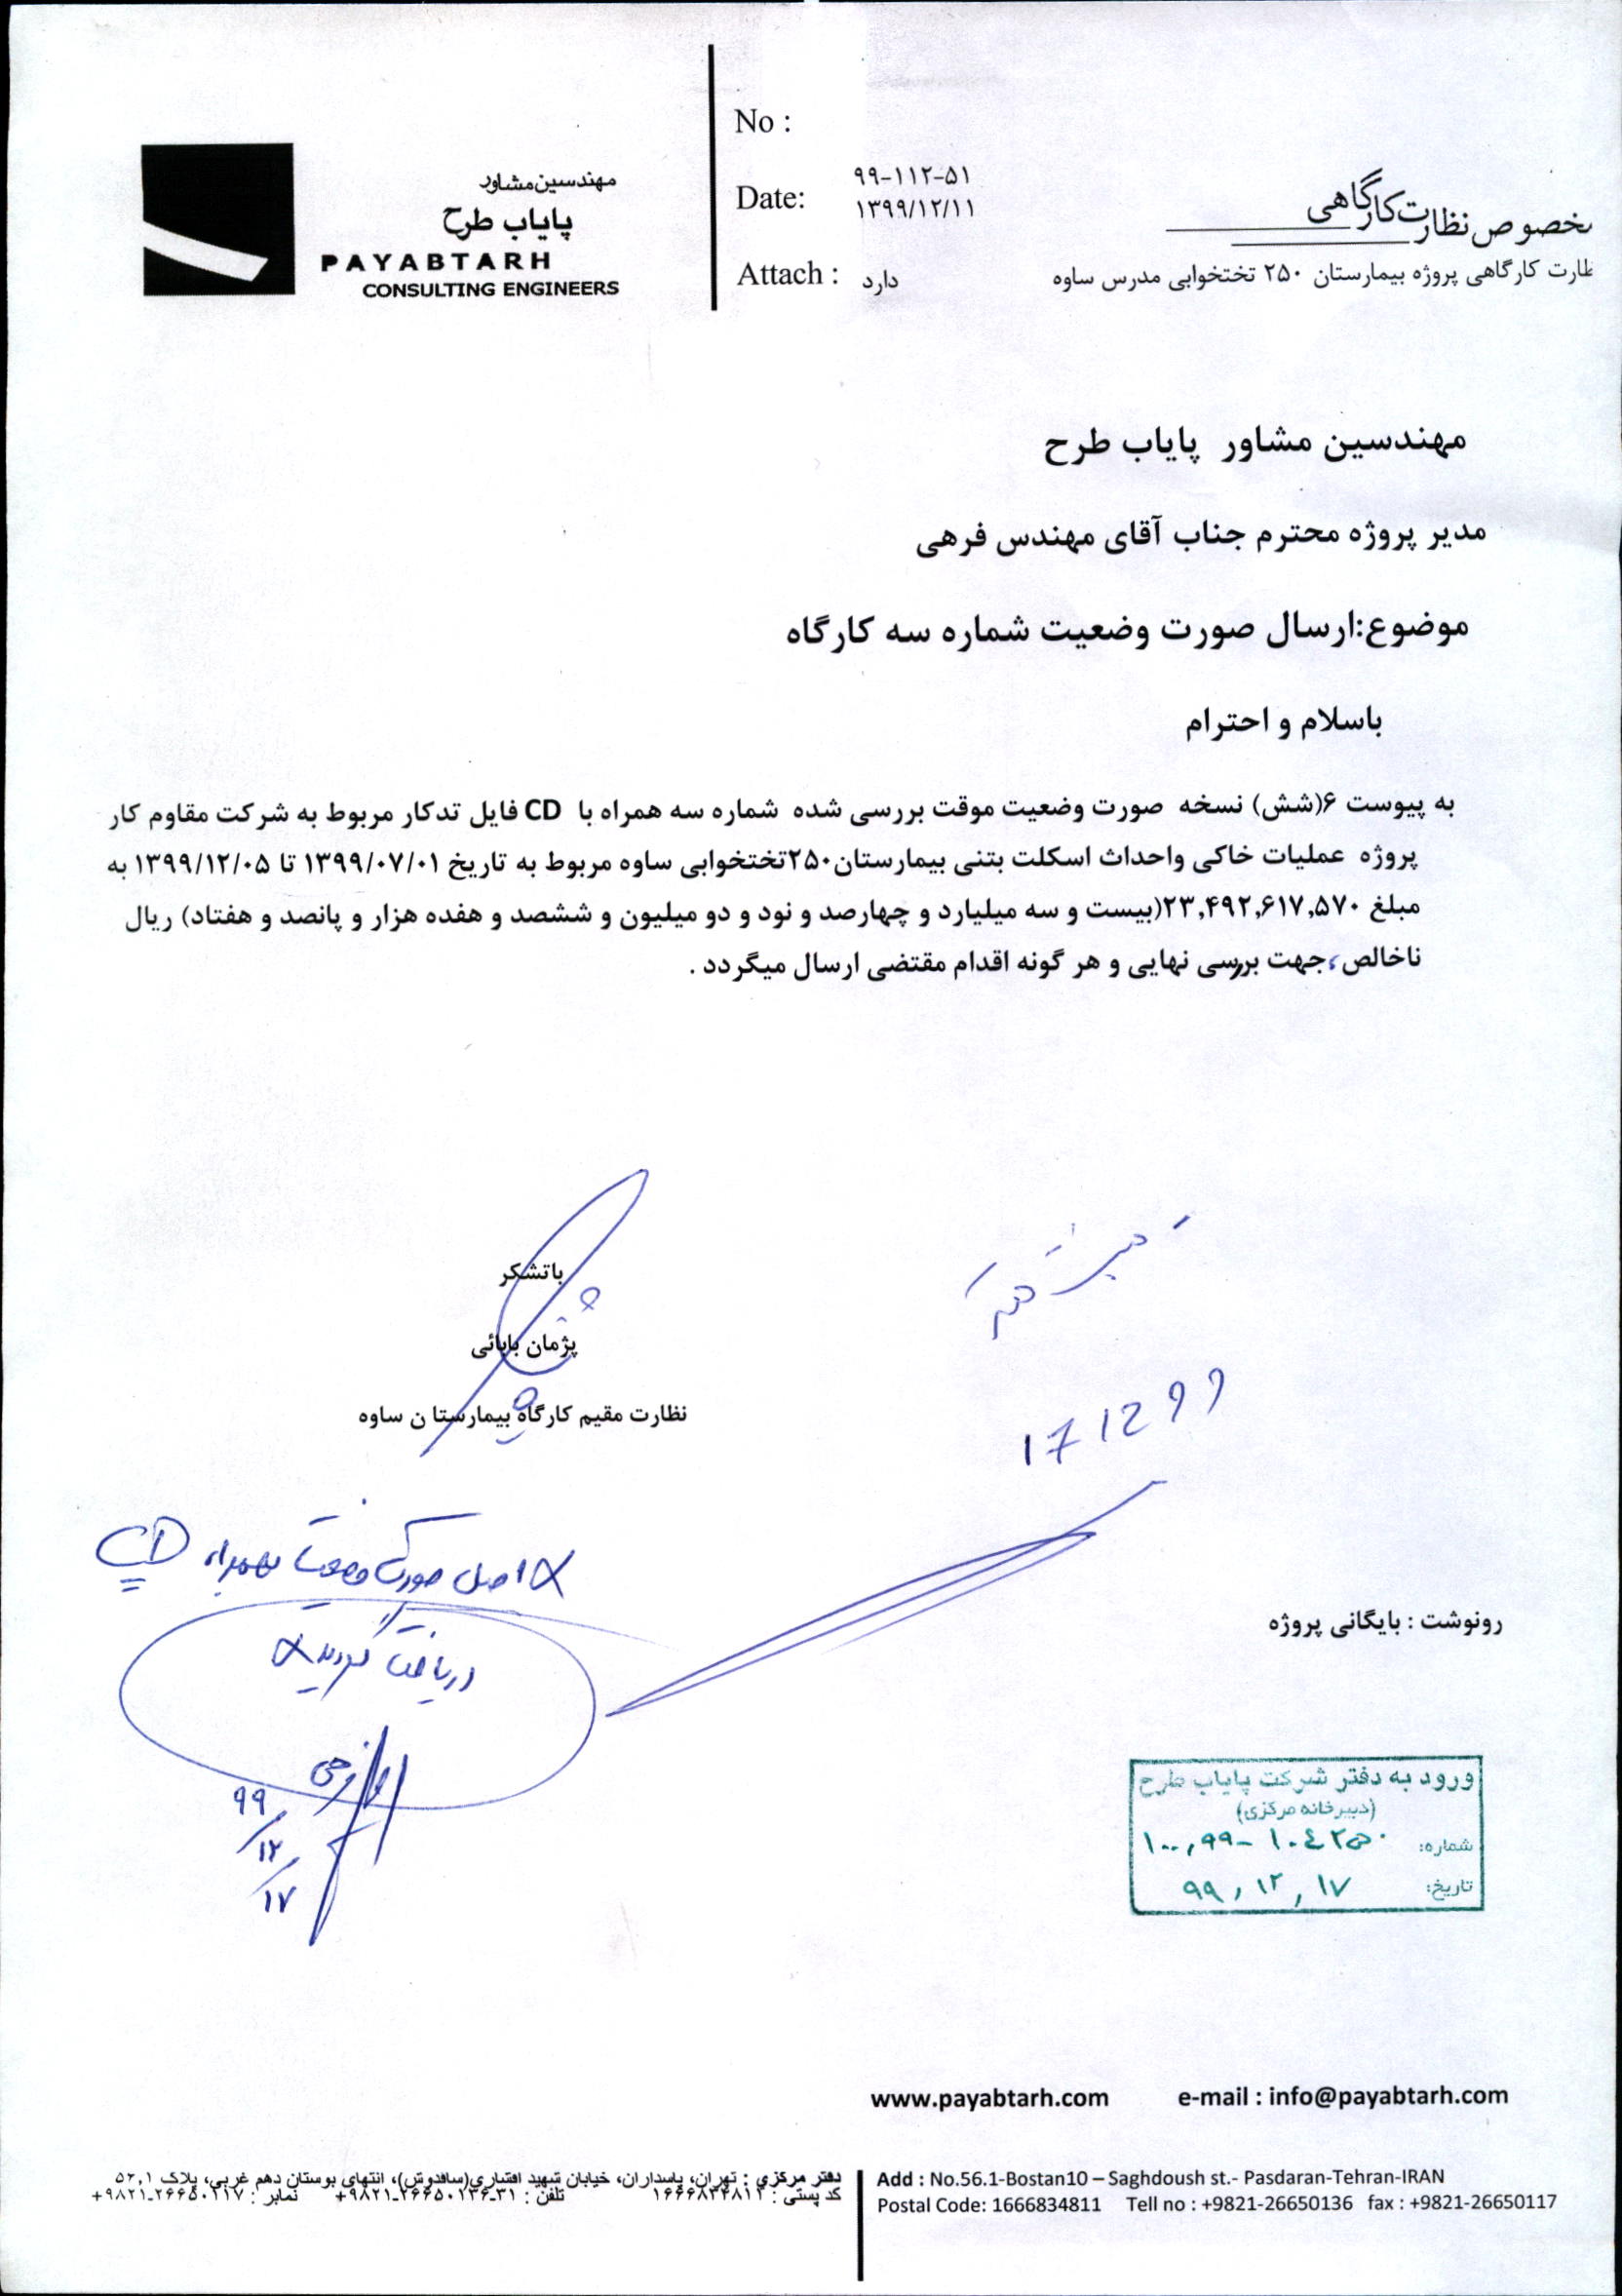 No :
۹۹-۱۱۲-۵۱
Date:
۱۳۹۹/۱۲/۱۱
Attach :
دارد
مهندسین مشاور
پایاب طرح
PAYABTARH
CONSULTING ENGINEERS
خصوص نظارت کارگاهی
ظارت کارگاهی پروژه بیمارستان ۲۵۰ تختخوابی مدرس ساوه
مهندسین مشاور پایاب طرح
مدیر پروژه محترم جناب آقای مهندس فرهی
موضوع:ارسال صورت وضعیت شماره سه کارگاه
باسلام و احترام
به پیوست ۶(شش) نسخه صورت وضعیت موقت بررسی شده شماره سه همراه با CD فایل تدکار مربوط به شرکت مقاوم کار
پروژه عملیات خاکی واحداث اسکلت بتنی بیمارستان۲۵۰تختخوابی ساوه مربوط به تاریخ ۱۳۹۹/۰۷/۰۱ تا ۱۳۹۹/۱۲/۰۵ به
مبلغ ۲۳,۴۹۲,۶۱۷,۵۷۰(بیست و سه میلیارد و چهارصد و نود و دو میلیون و ششصد و هفده هزار و پانصد و هفتاد) ریال
ناخالص، جهت بررسی نهایی و هر گونه اقدام مقتضی ارسال میگردد .
باتشکر
پژمان بابائی
نظارت مقیم کارگاه بیمارستان ساوه
171299
اصل صورت وضعیت بهمراه CD
دریافت گردید
۹۹/۱۲/۱۷
رونوشت : بایگانی پروژه
ورود به دفتر شرکت پایاب طرح
(دبیرخانه مرکزی)
شماره:
تاریخ: ۹۹,۱۲,۱۷
www.payabtarh.com e-mail : info@payabtarh.com
دفتر مرکزی : تهران، پاسداران، خیابان شهید افشاری(ساقدوش)، انتهای بوستان دهم غربی، پلاک ۵۲,۱
کد پستی : ۱۶۶۶۸۳۴۸۱۱ تلفن : ۳۱-۲۶۶۵۰۱۳۶-۹۸۲۱+ نمابر : ۲۶۶۵۰۱۱۷-۹۸۲۱+
Add : No.56.1-Bostan10 – Saghdoush st.- Pasdaran-Tehran-IRAN
Postal Code: 1666834811 Tell no : +9821-26650136 fax : +9821-26650117